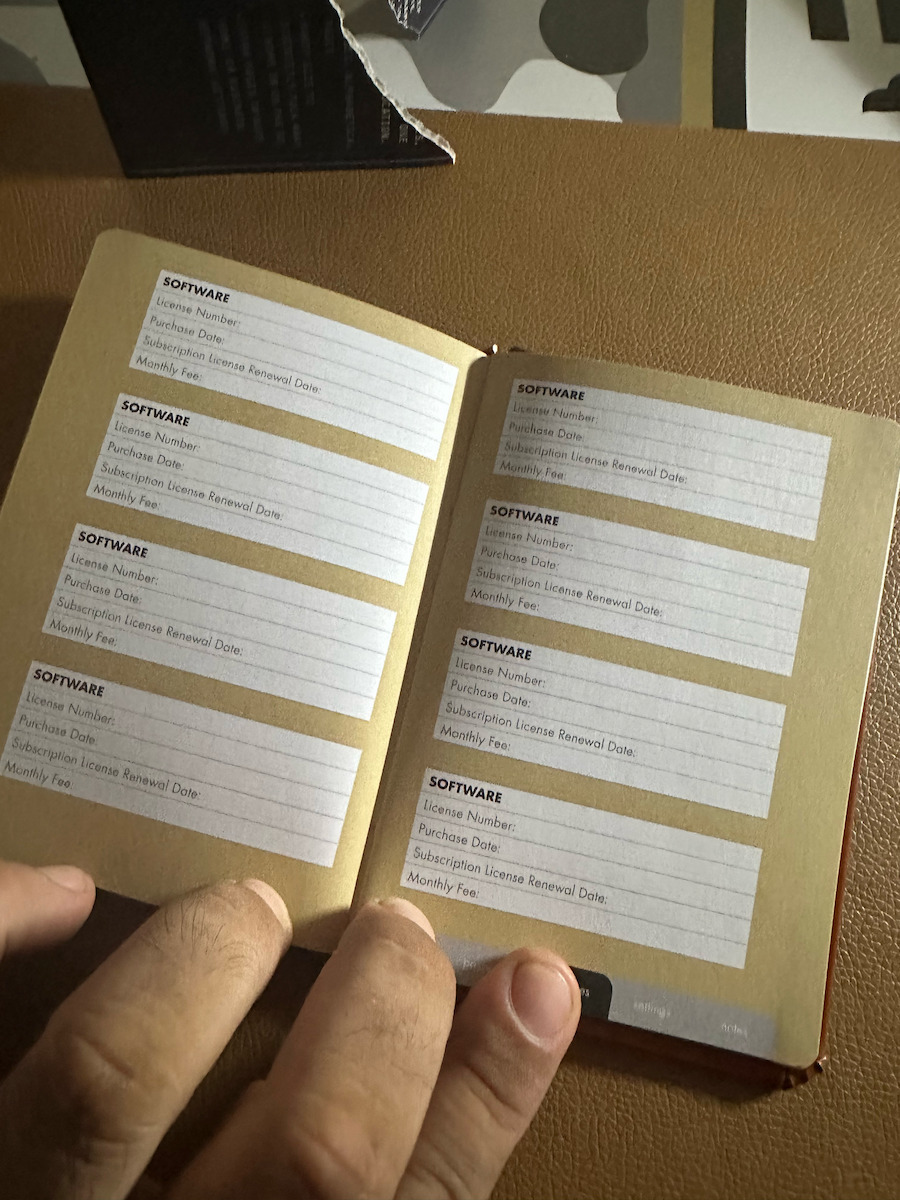 SOFTWARE
License Number:
Purchase Date:
Subscription License Renewal Date:
Monthly Fee:
SOFTWARE
License Number:
Purchase Date:
Subscription License Renewal Date:
Monthly Fee:
SOFTWARE
License Number:
Purchase Date:
Subscription License Renewal Date:
Monthly Fee:
SOFTWARE
License Number:
Purchase Date:
Subscription License Renewal Date:
Monthly Fee:
SOFTWARE
License Number:
Purchase Date:
Subscription License Renewal Date:
Monthly Fee:
SOFTWARE
License Number:
Purchase Date:
Subscription License Renewal Date:
Monthly Fee:
SOFTWARE
License Number:
Purchase Date:
Subscription License Renewal Date:
Monthly Fee:
SOFTWARE
License Number:
Purchase Date:
Subscription License Renewal Date:
Monthly Fee:
settings
notes